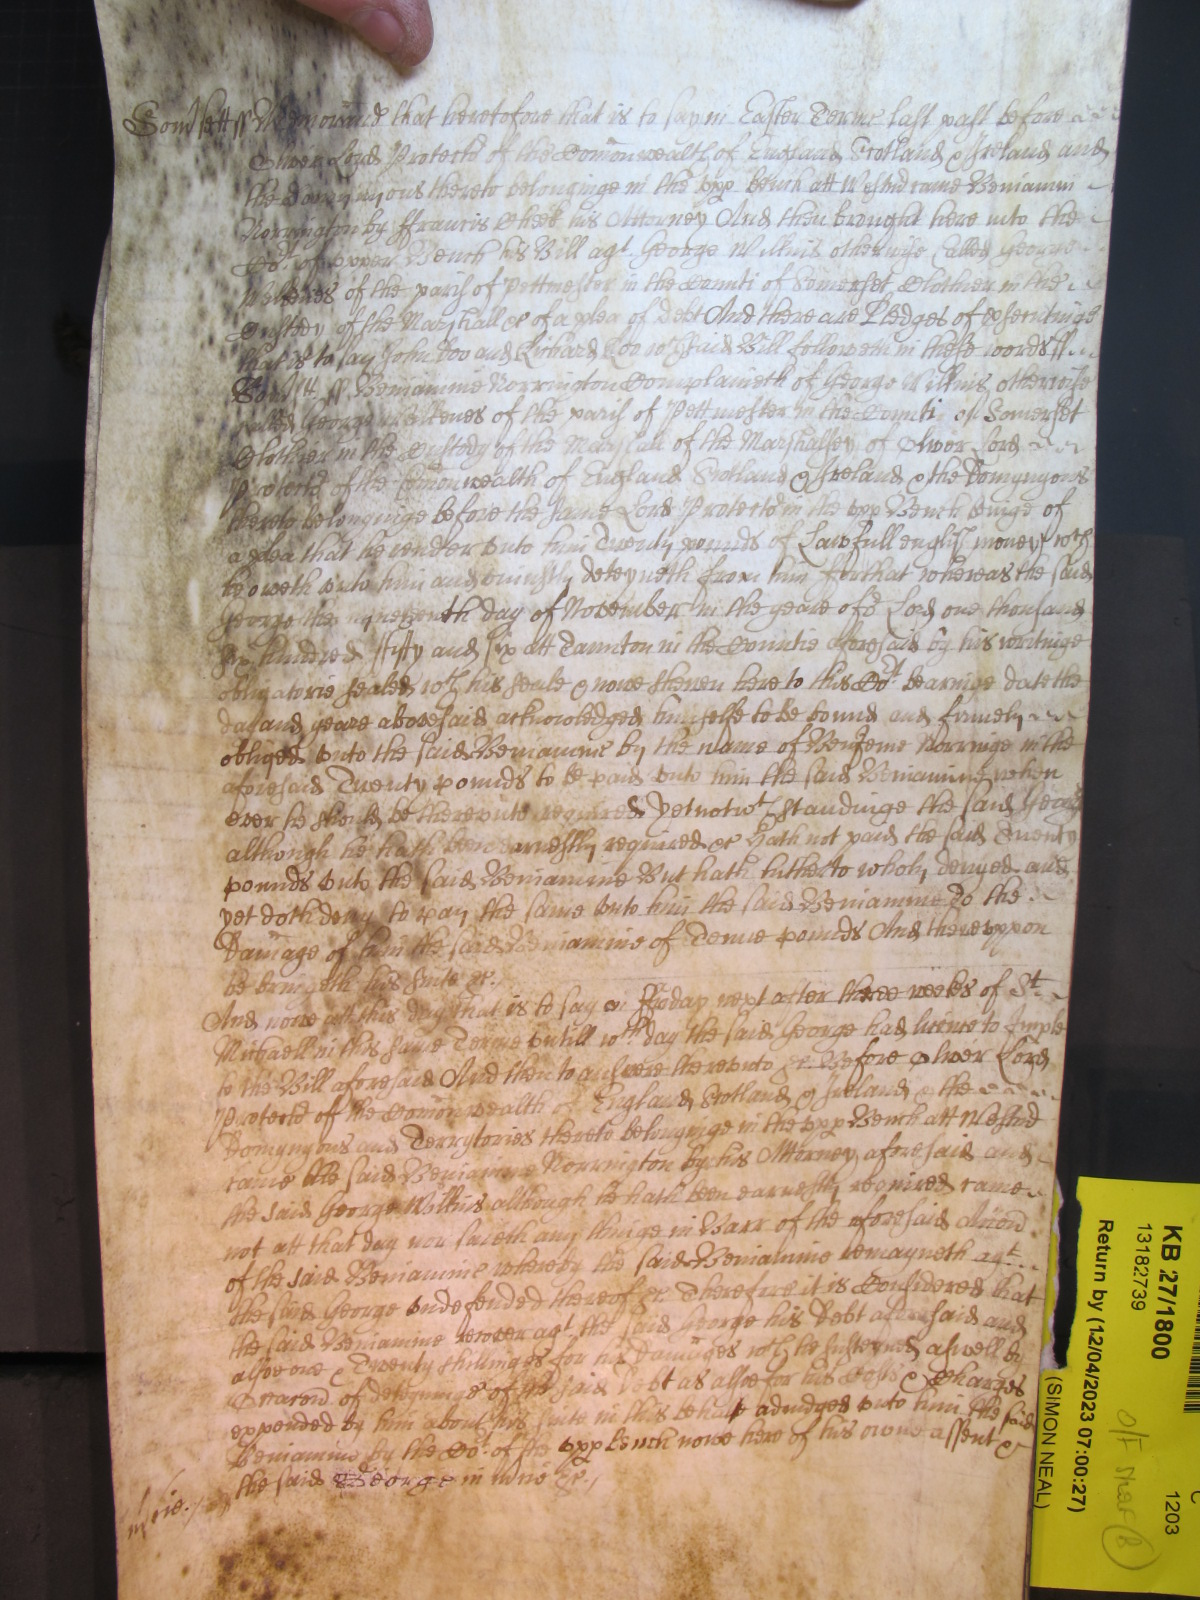 Somsett ss Memorand that heretofore that is to say in Easter Terme last past before
Oliver Lord Protector of the Comonwealth of England Scotland & Ireland and
the domynyons thereto belonginge in the upp bench att Westmr came Beniamin
Norrington by ffrancis Cheeke his Attorney And then brought here into the
Cort of upper Bench his Bill agt George Willms otherwise Called George
of the parish of Pettmister in the County of Somerset Clothier in the
Custody of the Marshall &c of a plea of debt And there are Pledges of psecutinge
that is to say John Doo and Richard Roo wch said Bill followeth in these words ss
Somsett ss Beniamine Norrington Complaineth of George Willms otherwise
called George of the parish of Pettmester in the County of Somerset
Clothier in the Custody of the Marshall of the Marshalsey of Oliver Lord
Protector of the Comonwealth of England Scotland & Ireland & the Domynyons
thereto belonginge before the same Lord Protector in the upp Bench beinge of
a plea that he render unto him Twenty pounds of Lawfull english money wch
he oweth unto him and uniustly deteyneth from him ffor that whereas the said
George the nyneteenth day of November in the yeare of or Lord one thousand
six hundred ffifty and six att Taunton in the Countie aforesaid by his writinge
obligatorie sealed wth his seale & nowe shewen here to this Cort bearinge date the
day and yeare abovesaid acknowledged himselfe to be bound and firmely
obliged unto the said Beniamine by the name of Benieme Norringe in the
aforesaid Twenty pounds to be paid unto him the said Beniamine when
ever he should be thereunto required Yet notwthstandinge the said George
although he hath been earnestly required &c Hath not paid the said Twenty
pounds unto the said Beniamine But hath hitherto wholy denyed and
yet doth deny to pay the same unto him the said Beniamine To the
Damage of him the said Beniamine of Tenne pounds And thereuppon
he bringeth his suite &c.
And nowe att this day that is to say on ffryday next after three weeks of St
Michaell in this same Terme untill wch day the said George had licence to Imple
to the Bill aforesaid And then to answere thereunto &c. Before Oliver Lord
Protector of the Comonwealth of England Scotland & Ireland & the
Domynyons and Terrytories thereto belonginge in the upp Bench att Westmr
came the said Beniamine Norrington by his Attorney aforesaid and
the said George Willms although he hath been earnestly required came
not att that day nor saieth any thinge in Barr of the aforesaid Accon
of the said Beniamine whereby the said Beniamine remayneth agt
the said George undefended thereof &c Therefore it is Considered that
the said Beniamine recover agt the said George his Debt aforesaid and
alsoe one & Twenty shillinges for his Damages wch he susteyned aswell by
Reason of deteyninge of the said debt as alsoe for his Costs & Charges
expended by him about his suite in this behalf adiudged unto him the said
Beniamine by the Cort of the upp Bench nowe here of his owne assent &
the said George in mcie &c.
mcie.
KB 27/1800
13182739
Return by (12/04/2023 07:00:27)
(SIMON NEAL)
1203